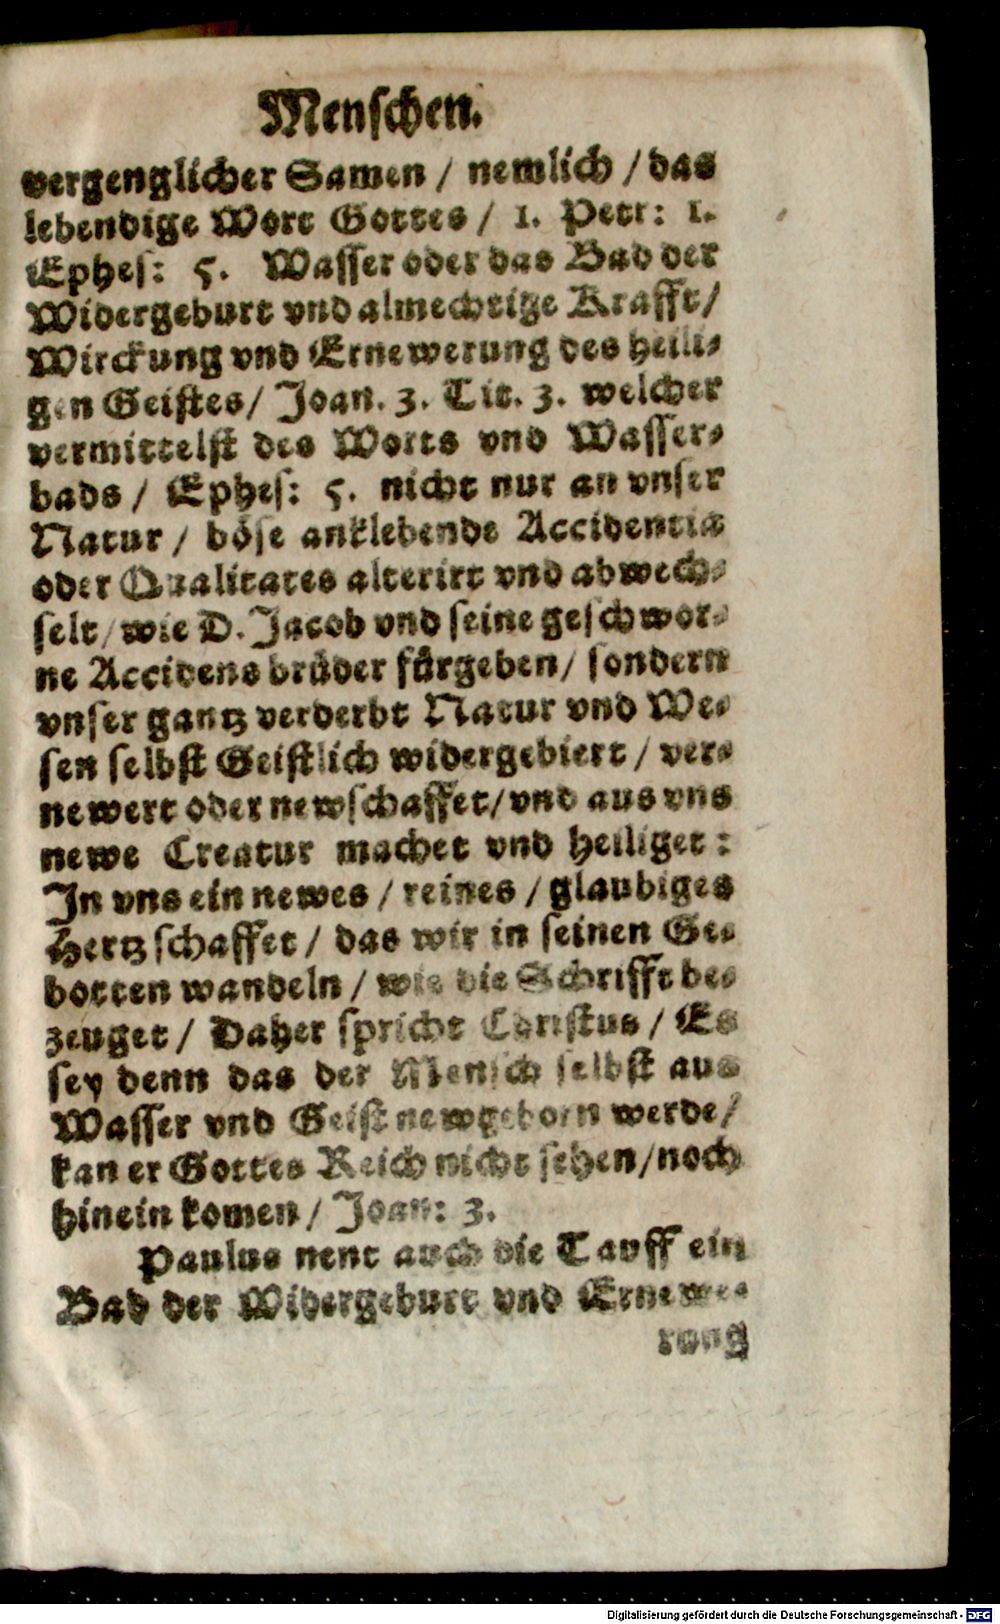 Menschen.
vergenglicher Samen / nemlich / das
lebendige Wort Gottes / 1. Petr: 1.
Ephes: 5. Wasser oder das Bad der
Widergeburt vnd almechtige Krafft/
Wirckung vnd Ernewerung des heili-
gen Geistes/ Joan. 3. Tit. 3. welcher
vermittelst des Worts vnd Wasser-
bads / Ephes: 5. nicht nur an vnser
Natur / böse anklebende Accidentia
oder Qualitates alterirt vnd abwech-
selt/ wie D. Jacob vnd seine geschwor-
ne Accidens brüder fürgeben/ sondern
vnser gantz verderbt Natur vnd We-
sen selbst Geistlich widergebiert / ver-
newert oder newschaffet/ vnd aus vns
newe Creatur machet vnd heiliget:
In vns ein newes / reines / glaubiges
Hertz schaffet / das wir in seinen Ge-
botten wandeln / wie die Schrifft be-
zeuget / Daher spricht Christus / Es
sey denn das der Mensch selbst aus
Wasser vnd Geist newgeborn werde/
kan er Gottes Reich nicht sehen/noch
hinein komen / Joan: 3.
Paulus nent auch die Tauff ein
Bad der Widergeburt vnd Ernewe-
rung
Digitalisierung gefördert durch die Deutsche Forschungsgemeinschaft - DFG